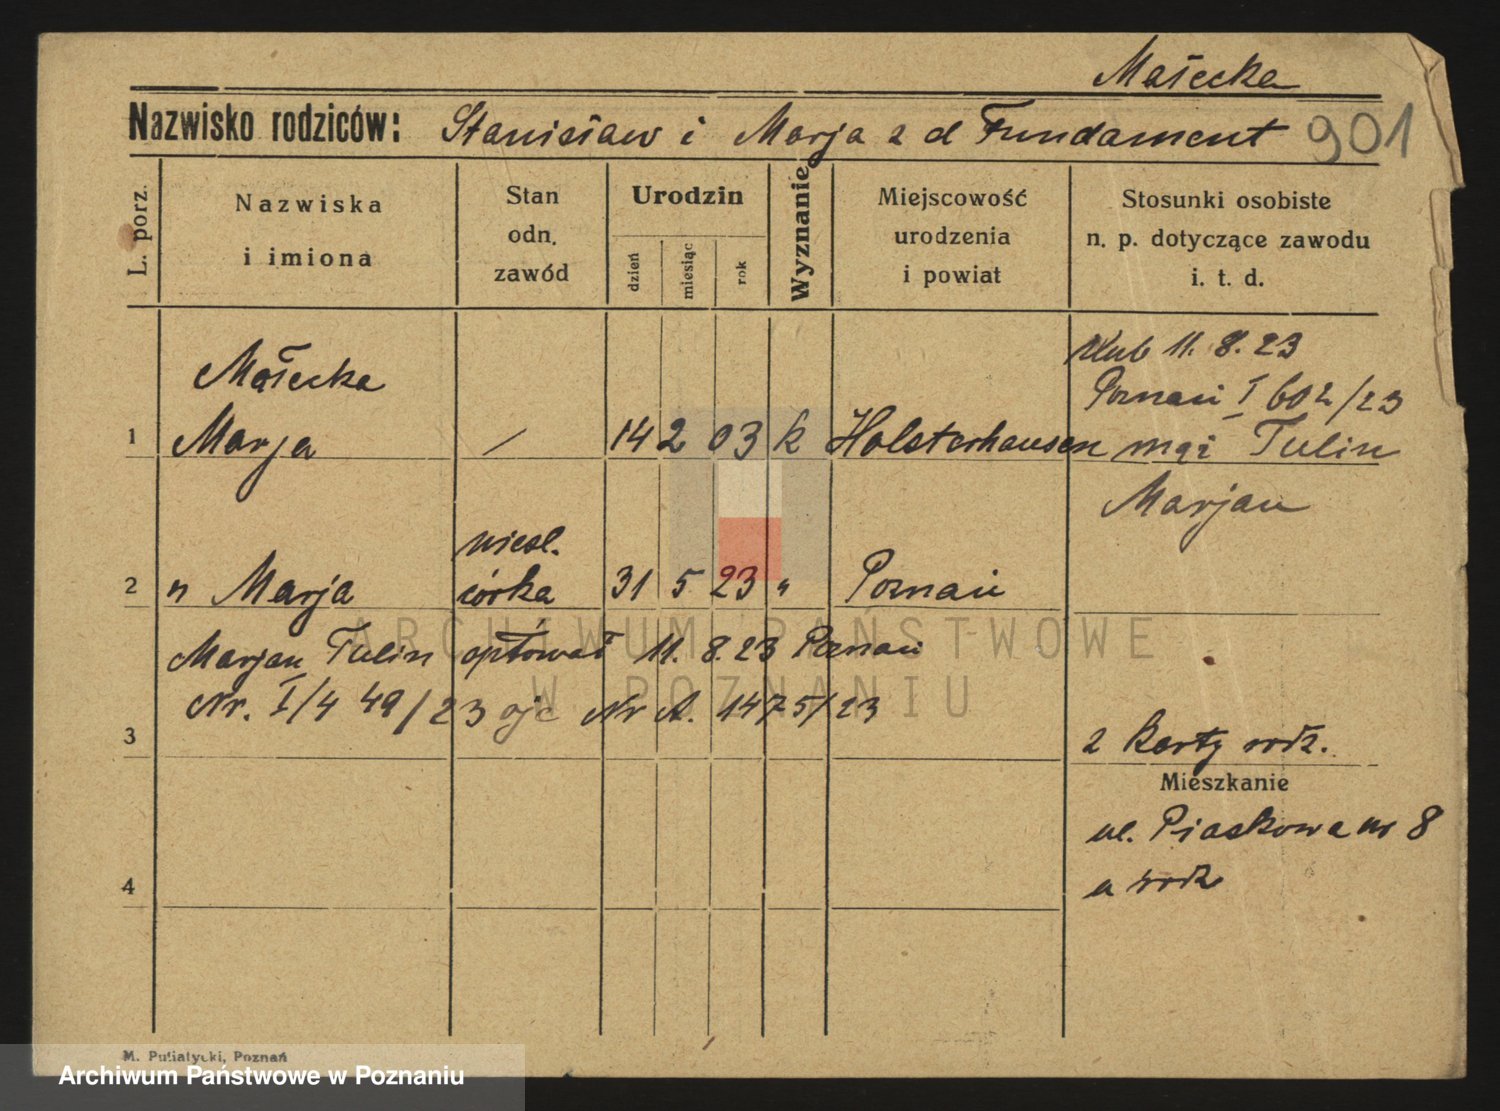 Małecka
Nazwisko rodziców: Stanisław i Marja z d Fundament 901
L. porz.
Nazwiska
i imiona
Stan
odn.
zawód
Urodzin
dzień
miesiąc
rok
Wyznanie
Miejscowość
urodzenia
i powiat
Stosunki osobiste
n. p. dotyczące zawodu
i. t. d.
Małecka
ślub 11. 8. 23
Poznań I 602/23
1 Marja / 14 2 03 k Holsterhausen mąż Tulin
Marjan
nieśl.
2 n Marja córka 31 5 23 " Poznań
Marjan Tulin optował 11. 8. 23 Poznań
Nr. I/4 49/23 ojc Nr A. 1475/23
3
2 Karty rodz.
Mieszkanie
ul. Piaskowa nr 8
u rodz
4
M. Putiatycki, Poznań
Archiwum Państwowe w Poznaniu
ARCHIWUM PAŃSTWOWE
W POZNANIU